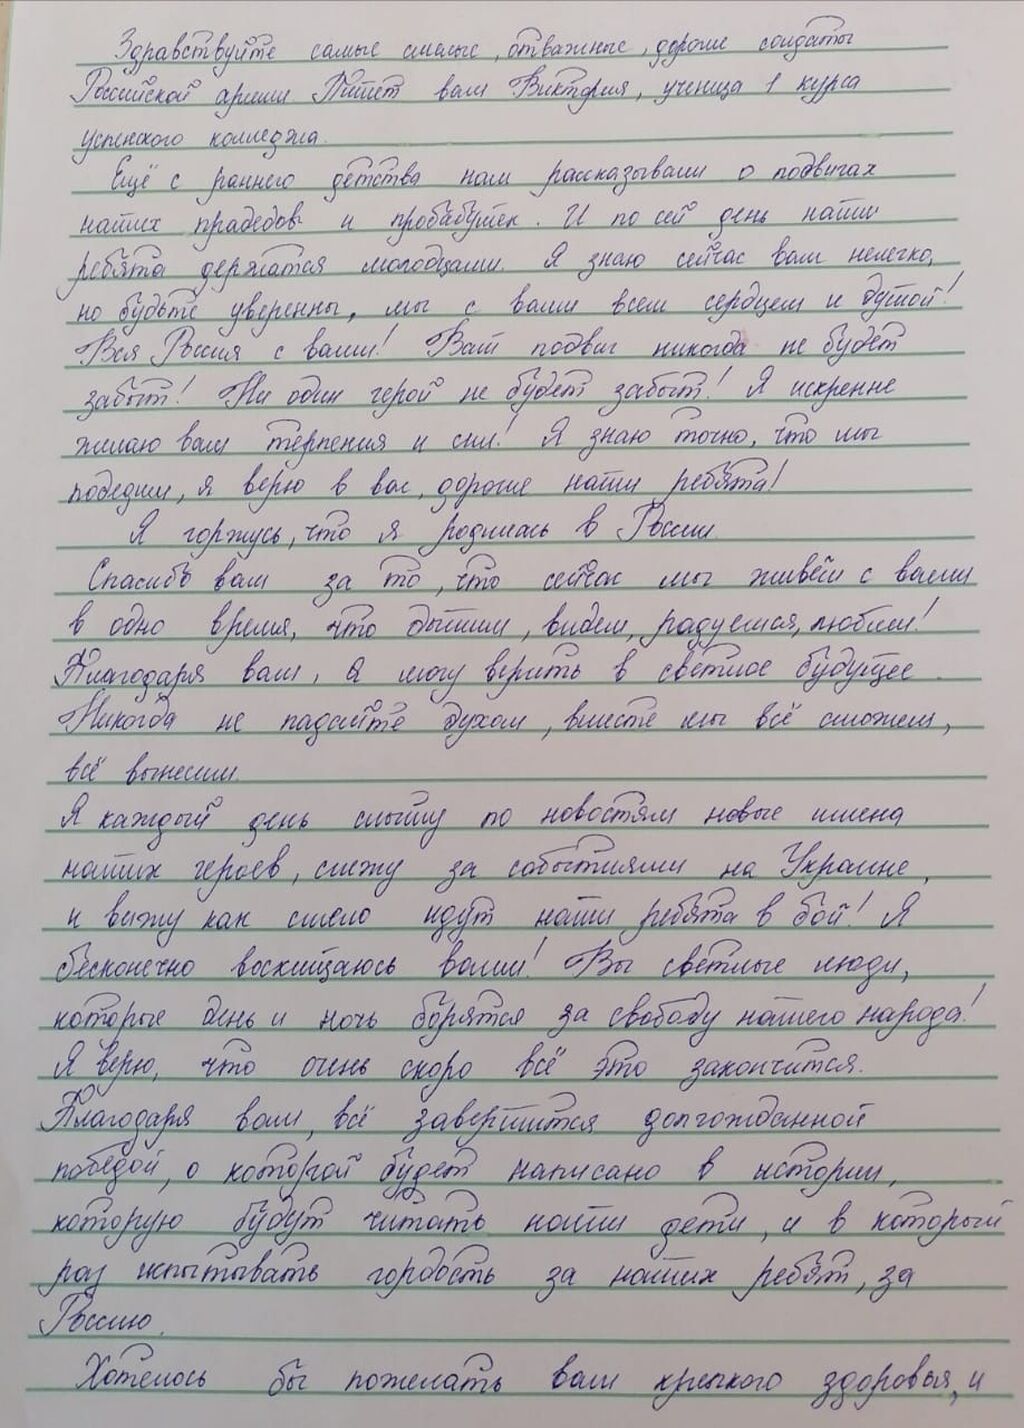 Здравствуйте самые смелые, отважные, дорогие солдаты
Российской армии Пишет вам Виктория, ученица 1 курса
успенского колледжа.
Ещё с раннего детства нам рассказывали о подвигах
наших прадедов и пробабушек. И по сей день наши
ребята держатся молодцами. Я знаю сейчас вам нелегко,
но будьте уверенны, мы с вами всем сердцем и душой!
Вся Россия с вами! Ваш подвиг никогда не будет
забыт! Ни один герой не будет забыт! Я искренне
желаю вам терпения и сил! Я знаю точно, что мы
победим, я верю в вас, дорогие наши ребята!
Я горжусь, что я родилась в России.
Спасибо вам за то, что сейчас мы живём с вами
в одно время, что дышим, видем, радуемся, любим!
Благодаря вам, я могу верить в светлое будущее.
Никогда не падайте духом, вместе мы всё сможем,
всё вынесим.
Я каждый день слышу по новостям новые имена
наших героев, слежу за событиями на Украине,
и вижу как смело идут наши ребята в бой! Я
бесконечно восхищаюсь вами! Вы светлые люди,
которые день и ночь борятся за свободу нашего народа!
Я верю, что очень скоро всё это закончится.
Благодаря вам, всё завершится долгожданной
победой, о которой будет написано в истории,
которую будут читать наши дети, и в который
раз испытывать гордость за наших ребят, за
Россию.
Хотелось бы пожелать вам крепкого здоровья, и